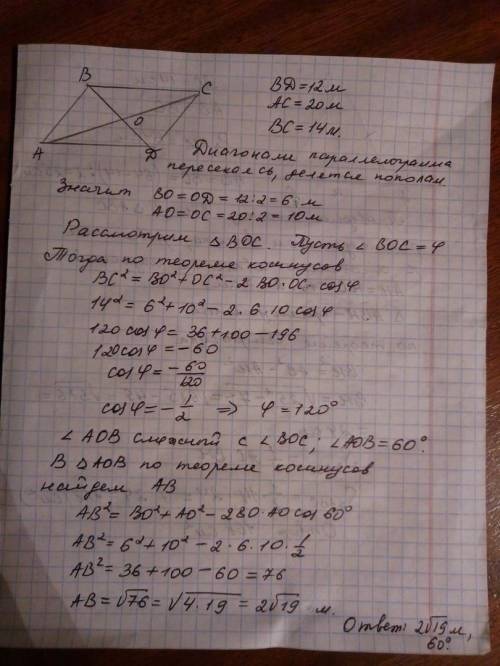 B
C
O
A
D
BD=12м
AC=20м
BC=14м.
Диагонали параллелограмма
пересекаясь, делятся пополам.
Значит BO=OD=12:2=6 м
AO=OC=20:2=10м
Рассмотрим △BOC. Пусть ∠BOC=φ
Тогда по теореме косинусов
BC²=BO²+OC²-2 BO·OC·cosφ
14²=6²+10²-2·6·10cosφ
120cosφ=36+100-196
120cosφ=-60
cosφ=-60/120
cosφ=-1/2 ⇒ φ=120°
∠AOB смежный с ∠BOC; ∠AOB=60°.
В △AOB по теореме косинусов
найдем AB
AB²=BO²+AO²-2BO·AO cos60°
AB²=6²+10²-2·6·10·1/2
AB²=36+100-60=76
AB=√76=√4·19=2√19 м.
Ответ: 2√19 м,
60°.